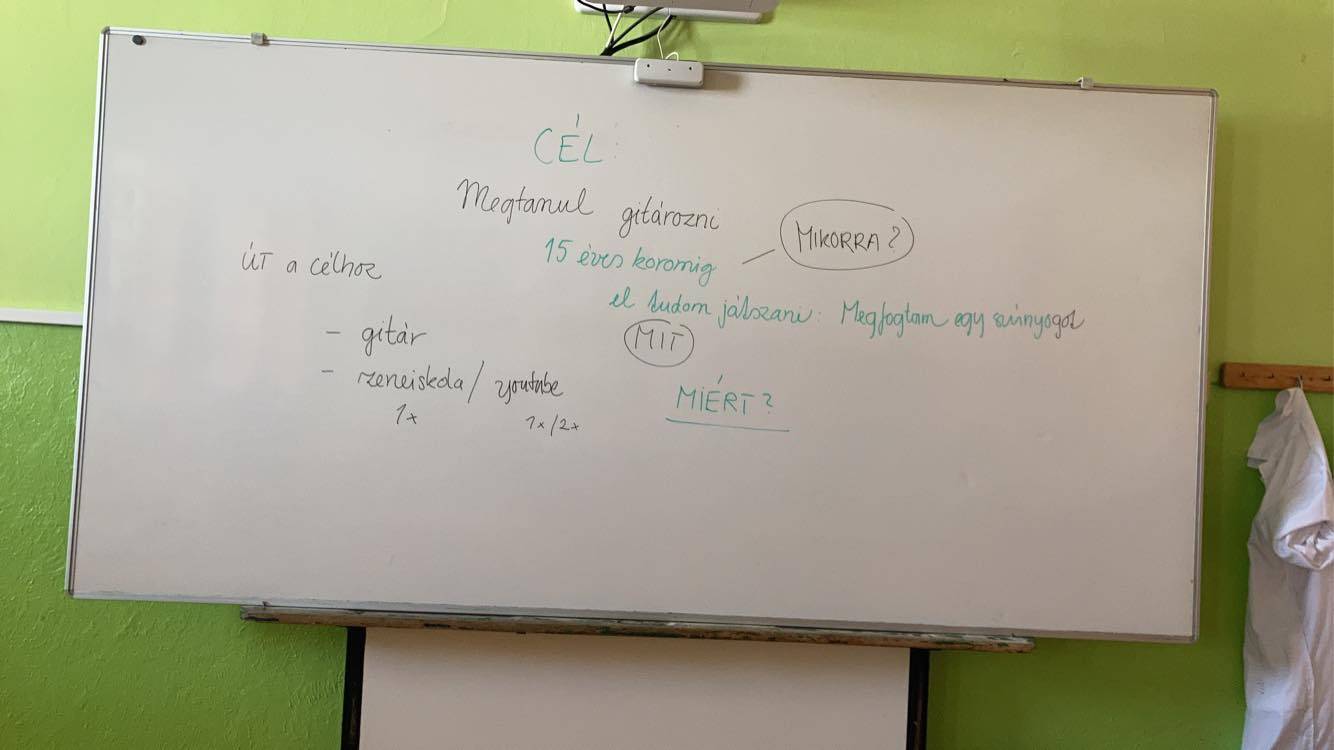 CÉL:
Megtanul gitározni
MIKORRA?
15 éves koromig
el tudom játszani: Megfogtam egy szúnyogot
MIT
MIÉRT?
ÚT a célhoz
- gitár
- zeneiskola / youtube
1x 1x/2x